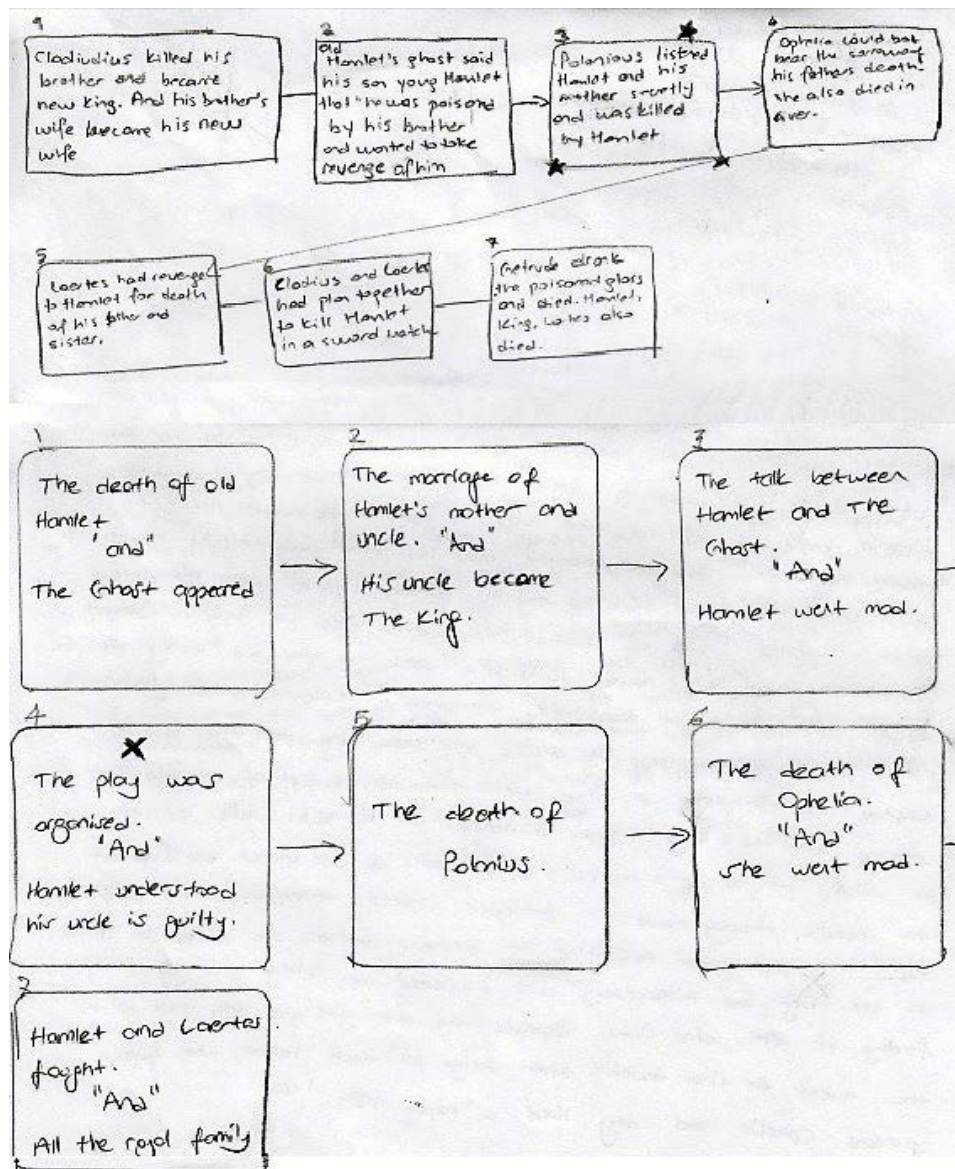 1
Cladiudius killed his
brother and became
new king. And his brother's
wife become his new
wife
2
old
Hamlet's ghost said
his son young Hamlet
that "he was poisond
by his brother
and wanted to take
revenge of him
3
Polonious listned
Hamlet and his
mother srcetly
and was killed
by Hamlet
4
Ophelia could not
bear the sorrow of
his fathers death
she also died in
river.
5
Laertes had revenge
to Hamlet for death
of his father and
sister.
6
Cladius and Laertes
had plan together
to kill Hamlet
in a sword match
7
Getrude drank
the poisoned glass
and died. Hamlet,
King, also
died.
1
The death of old
Hamlet
"and"
The Ghost appeared
2
The marriage of
Hamlet's mother and
uncle. "And"
His uncle became
The King.
3
The talk between
Hamlet and The
Ghost.
"And"
Hamlet went mad.
4
The play was
organised.
"And"
Hamlet understood
his uncle is guilty.
5
The death of
Polonius.
6
The death of
Ophelia.
"And"
She went mad.
7
Hamlet and Laertes
fought.
"And"
All the royal family